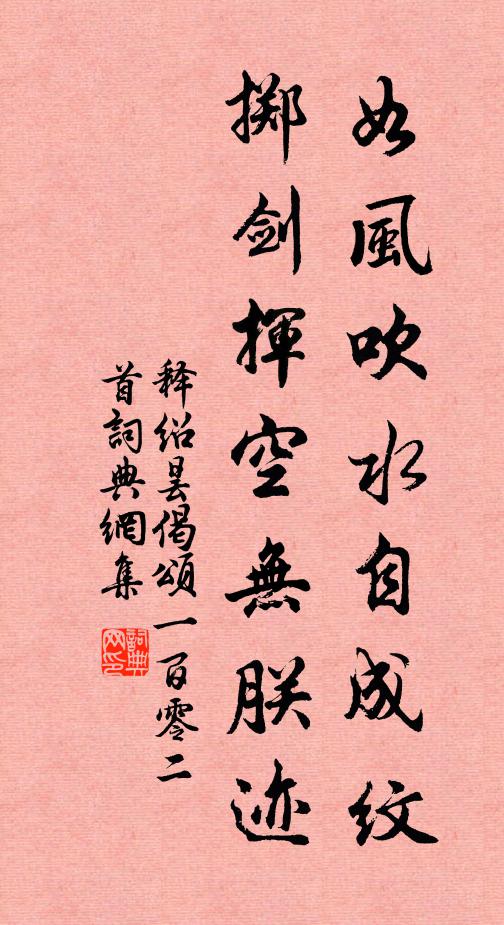 如風吹水自成紋
掷剑揮空無朕迹
释绍昙偈頌一百零二
首詞典網集
詞典
网印